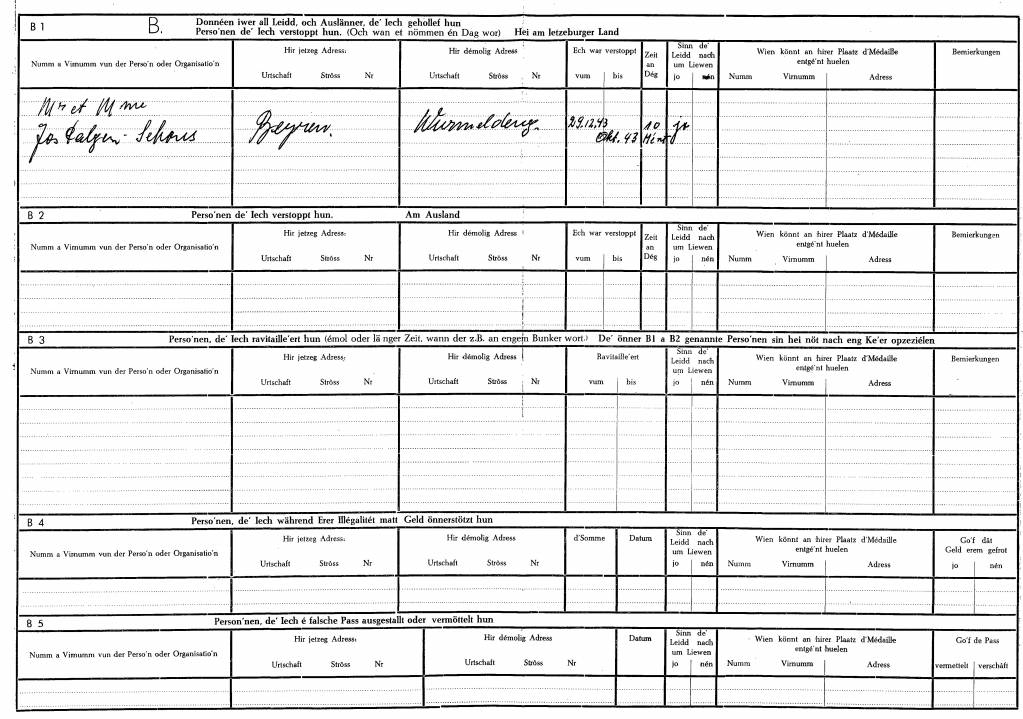 B 1 B. Donnéen iwer all Leidd, och Auslänner, de' Iech gehollef hun
Perso'nen de' Iech verstoppt hun. (Och wan et nömmen én Dag wor) Hei am letzeburger Land
Numm a Vimumm vun der Perso'n oder Organisatio'n
Hir jetzeg Adress:
Urtschaft Ströss Nr
Hir démolig Adress
Urtschaft Ströss Nr
Ech war verstoppt
vum bis
Zeit
an
Dég
Sinn de'
Leidd nach
um Liewen
jo nén
Wien könnt an hirer Plaatz d'Médaille
entgé'nt huelen
Numm Virnumm Adress
Bemierkungen
Mr et Mme
Jos Beyren. Wurmeldeng. 29.12.43 10 jo
Okt. 43
B 2 Perso'nen de' Iech verstoppt hun. Am Ausland
Numm a Vimumm vun der Perso'n oder Organisatio'n
Hir jetzeg Adress:
Urtschaft Ströss Nr
Hir démolig Adress
Urtschaft Ströss Nr
Ech war verstoppt
vum bis
Zeit
an
Dég
Sinn de'
Leidd nach
um Liewen
jo nén
Wien könnt an hirer Plaatz d'Médaille
entgé'nt huelen
Numm Virnumm Adress
Bemierkungen
B 3 Perso'nen, de' Iech ravitaille'ert hun (émol oder länger Zeit, wann der z.B. an engem Bunker wort.) De' önner B1 a B2 genannte Perso'nen sin hei nöt nach eng Ke'er opzeziélen
Numm a Vimumm vun der Perso'n oder Organisatio'n
Hir jetzeg Adress:
Urtschaft Ströss Nr
Hir démolig Adress
Urtschaft Ströss Nr
Ravitaille'ert
vum bis
Sinn de'
Leidd nach
um Liewen
jo nén
Wien könnt an hirer Plaatz d'Médaille
entgé'nt huelen
Numm Virnumm Adress
Bemierkungen
B 4 Perso'nen, de' Iech während Erer Illégalitét matt Geld önnerstötzt hun
Numm a Vimumm vun der Perso'n oder Organisatio'n
Hir jetzeg Adress:
Urtschaft Ströss Nr
Hir démolig Adress
Urtschaft Ströss Nr
d'Somme
Datum
Sinn de'
Leidd nach
um Liewen
jo nén
Wien könnt an hirer Plaatz d'Médaille
entgé'nt huelen
Numm Virnumm Adress
Go'f dât
Geld erem gefrot
jo nén
B 5 Person'nen, de' Iech é falsche Pass ausgestallt oder vermöttelt hun
Numm a Vimumm vun der Perso'n oder Organisatio'n
Hir jetzeg Adress:
Urtschaft Ströss Nr
Hir démolig Adress
Urtschaft Ströss Nr
Datum
Sinn de'
Leidd nach
um Liewen
jo nén
Wien könnt an hirer Plaatz d'Médaille
entgé'nt huelen
Numm Virnumm Adress
Go'f de Pass
vermettelt verschâft